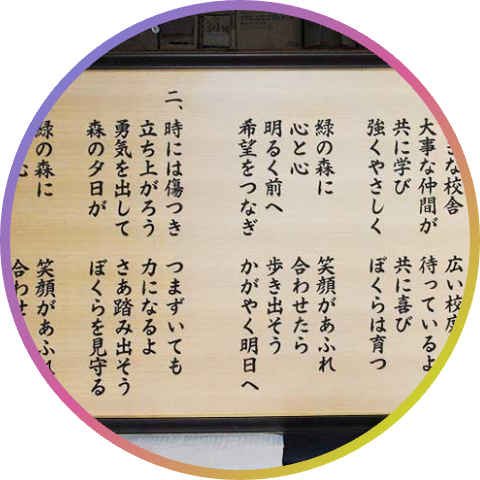 な校舎 広い校庭
大事な仲間が 待っているよ
共に学び 共に喜び
強くやさしく ぼくらは育つ
緑の森に 笑顔があふれ
心と心 合わせたら
明るく前へ 歩き出そう
希望をつなぎ かがやく明日へ
二、時には傷つき つまずいても
立ち上がろう 力になるよ
勇気を出して さあ踏み出そう
森の夕日が ぼくらを見守る
緑の森に 笑顔があふれ
心 合わせ